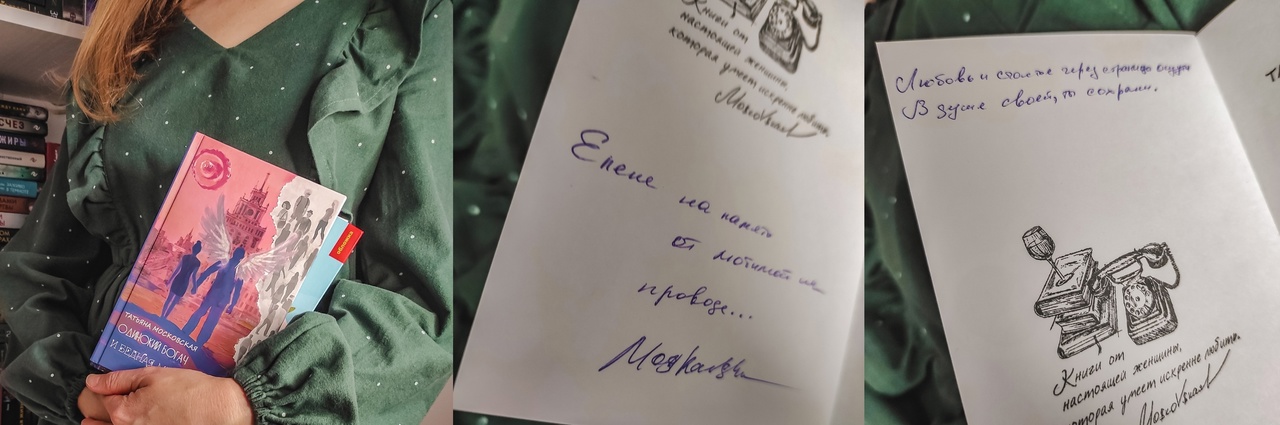 СЧЕЗ
ЖИРЫ
ТАТЬЯНА МОСКОВСКАЯ
ОДИНОКИЙ БОГАЧ
И БЕДНАЯ
Книги от
настоящей женщины,
которая умеет искренне любить.
MoscoVskaya
Елене на память
от
проводе...
Любовь и счастье через страницы ощути
В душе своей, то сохрани.
Книги от
настоящей женщины,
которая умеет искренне любить.
MoscoVskaya